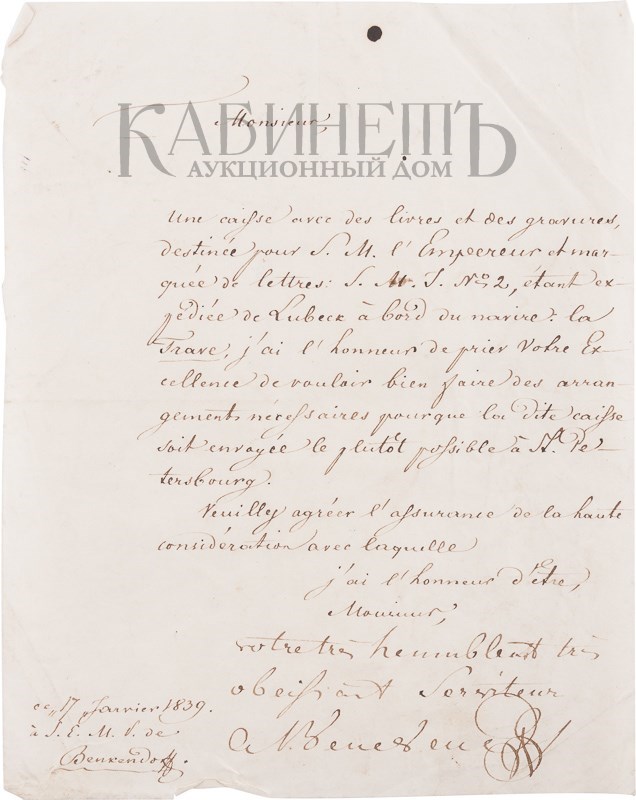 КАБИНЕТЪ
АУКЦИОННЫЙ ДОМ
Monsieur,
Une caisse avec des livres et des gravures,
destinée pour S. M. l'Empereur et mar-
quée de lettres: S. M. I. No 2, étant ex-
pédiée de Lubeck à bord du navire: la
Trave, j'ai l'honneur de prier Votre Ex-
cellence de vouloir bien faire des arran-
gements nécessaires pourque la dite caisse
soit envoyée le plutôt possible à St. Pe-
tersbourg.
Veuillez agréer l'assurance de la haute
considération avec laquelle
j'ai l'honneur d'être,
Monsieur,
votre très humble et très
obeissant Serviteur
ce 17 Janvier 1839.
à S. E. M. de
Benkendoff.